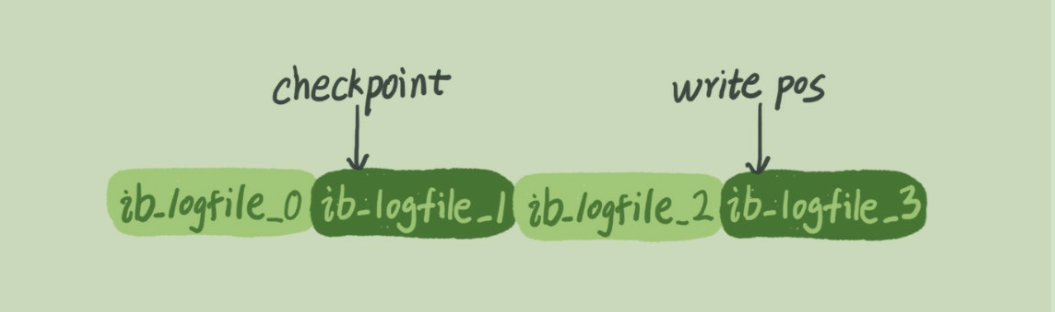 checkpoint write pos
ib_logfile_0 ib_logfile_1 ib_logfile_2 ib_logfile_3